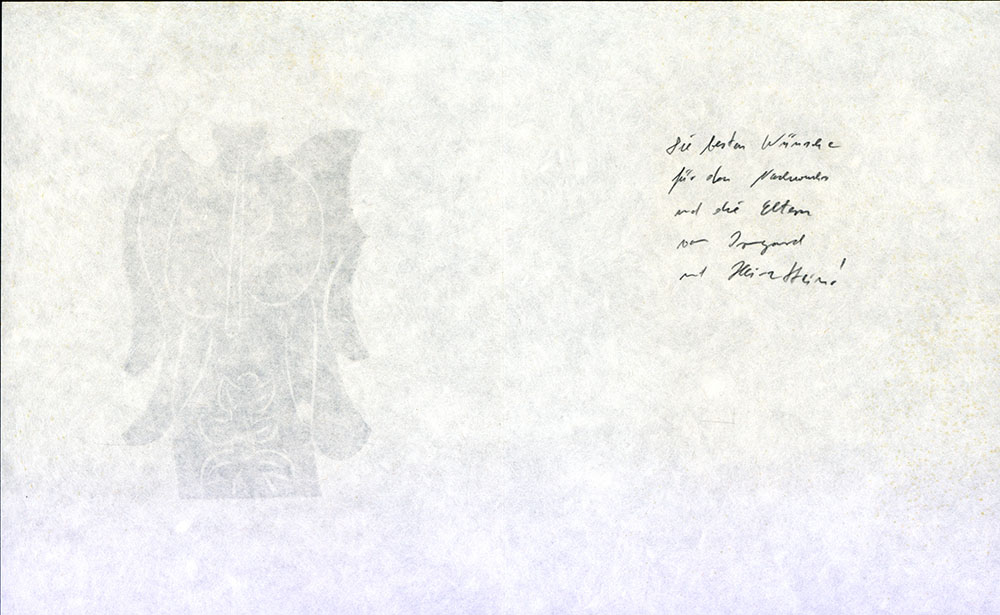 Die besten Wünsche
für den Nachwuchs
und die Eltern
von Irmgard
und Heinz